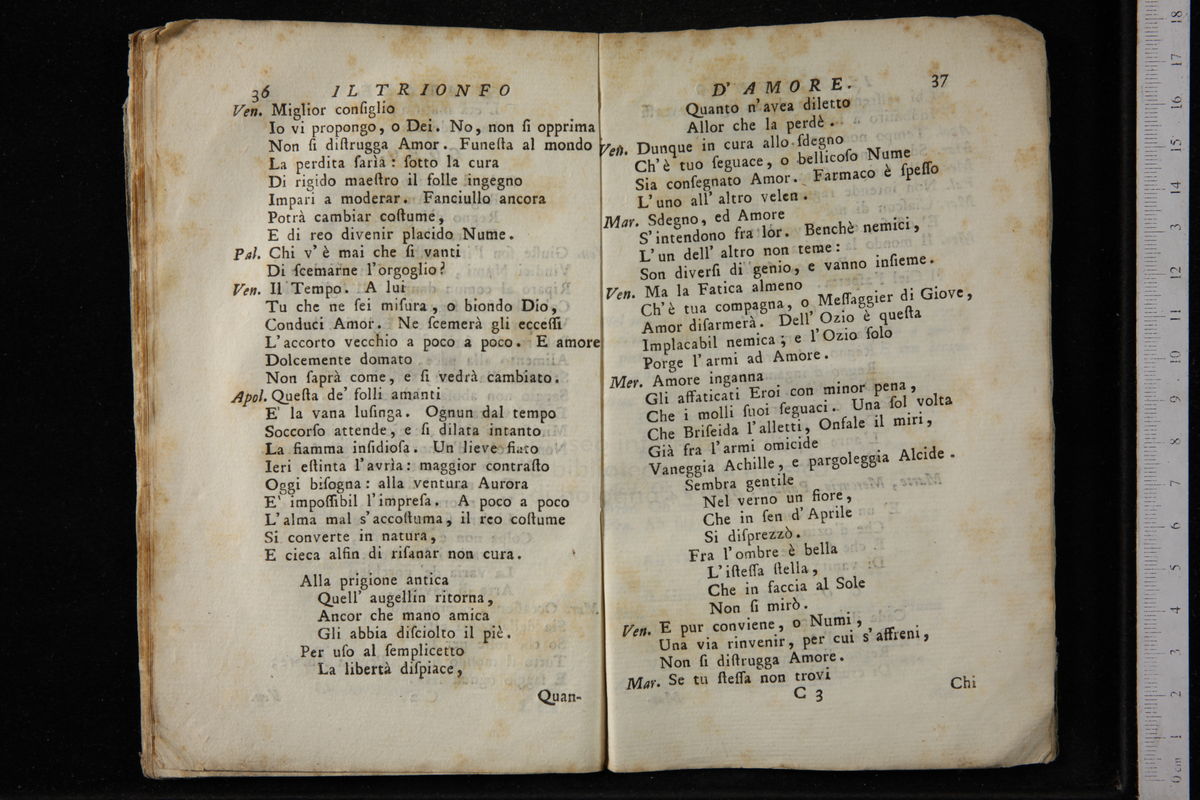 36 IL TRIONFO
Ven. Miglior conſiglio
Io vi propongo, o Dei. No, non ſi opprima
Non ſi diſtrugga Amor. Funeſta al mondo
La perdita ſarìa: ſotto la cura
Di rigido maeſtro il folle ingegno
Impari a moderar. Fanciullo ancora
Potrà cambiar coſtume,
E di reo divenir placido Nume.
Pal. Chi v'è mai che ſi vanti
Di ſcemarne l'orgoglio?
Ven. Il Tempo. A lui
Tu che ne ſei miſura, o biondo Dio,
Conduci Amor. Ne ſcemerà gli ecceſſi
L'accorto vecchio a poco a poco. E amore
Dolcemente domato
Non ſaprà come, e ſi vedrà cambiato.
Apol. Queſta de' folli amanti
E' la vana luſinga. Ognun dal tempo
Soccorſo attende, e ſi dilata intanto
La fiamma inſidioſa. Un lieve fiato
Ieri eſtinta l'avrìa: maggior contraſto
Oggi biſogna: alla ventura Aurora
E' impoſſibil l'impreſa. A poco a poco
L'alma mal s'accoſtuma, il reo coſtume
Si converte in natura,
E cieca alfin di riſanar non cura.
Alla prigione antica
Quell' augellin ritorna,
Ancor che mano amica
Gli abbia diſciolto il piè.
Per uſo al ſemplicetto
La libertà diſpiace,
Quan-
D' AMORE. 37
Quanto n'avea diletto
Allor che la perdè.
Ven. Dunque in cura allo ſdegno
Ch'è tuo ſeguace, o bellicoſo Nume
Sia conſegnato Amor. Farmaco è ſpeſſo
L'uno all' altro velen.
Mar. Sdegno, ed Amore
S'intendono fra lor. Benchè nemici,
L'un dell' altro non teme:
Son diverſi di genio, e vanno inſieme.
Ven. Ma la Fatica almeno
Ch'è tua compagna, o Meſſaggier di Giove,
Amor diſarmerà. Dell' Ozio è queſta
Implacabil nemica; e l'Ozio ſolo
Porge l'armi ad Amore.
Mer. Amore inganna
Gli affaticati Eroi con minor pena,
Che i molli ſuoi ſeguaci. Una ſol volta
Che Briſeida l'alletti, Onfale il miri,
Già fra l'armi omicide
Vaneggia Achille, e pargoleggia Alcide.
Sembra gentile
Nel verno un fiore,
Che in ſen d'Aprile
Si diſprezzò.
Fra l'ombre è bella
L'iſteſſa ſtella,
Che in faccia al Sole
Non ſi mirò.
Ven. E pur conviene, o Numi,
Una via rinvenir, per cui s'affreni,
Non ſi diſtrugga Amore.
Mar. Se tu ſteſſa non trovi
C 3 Chi
0 cm 1 2 3 4 5 6 7 8 9 10 11 12 13 14 15 16 17 18